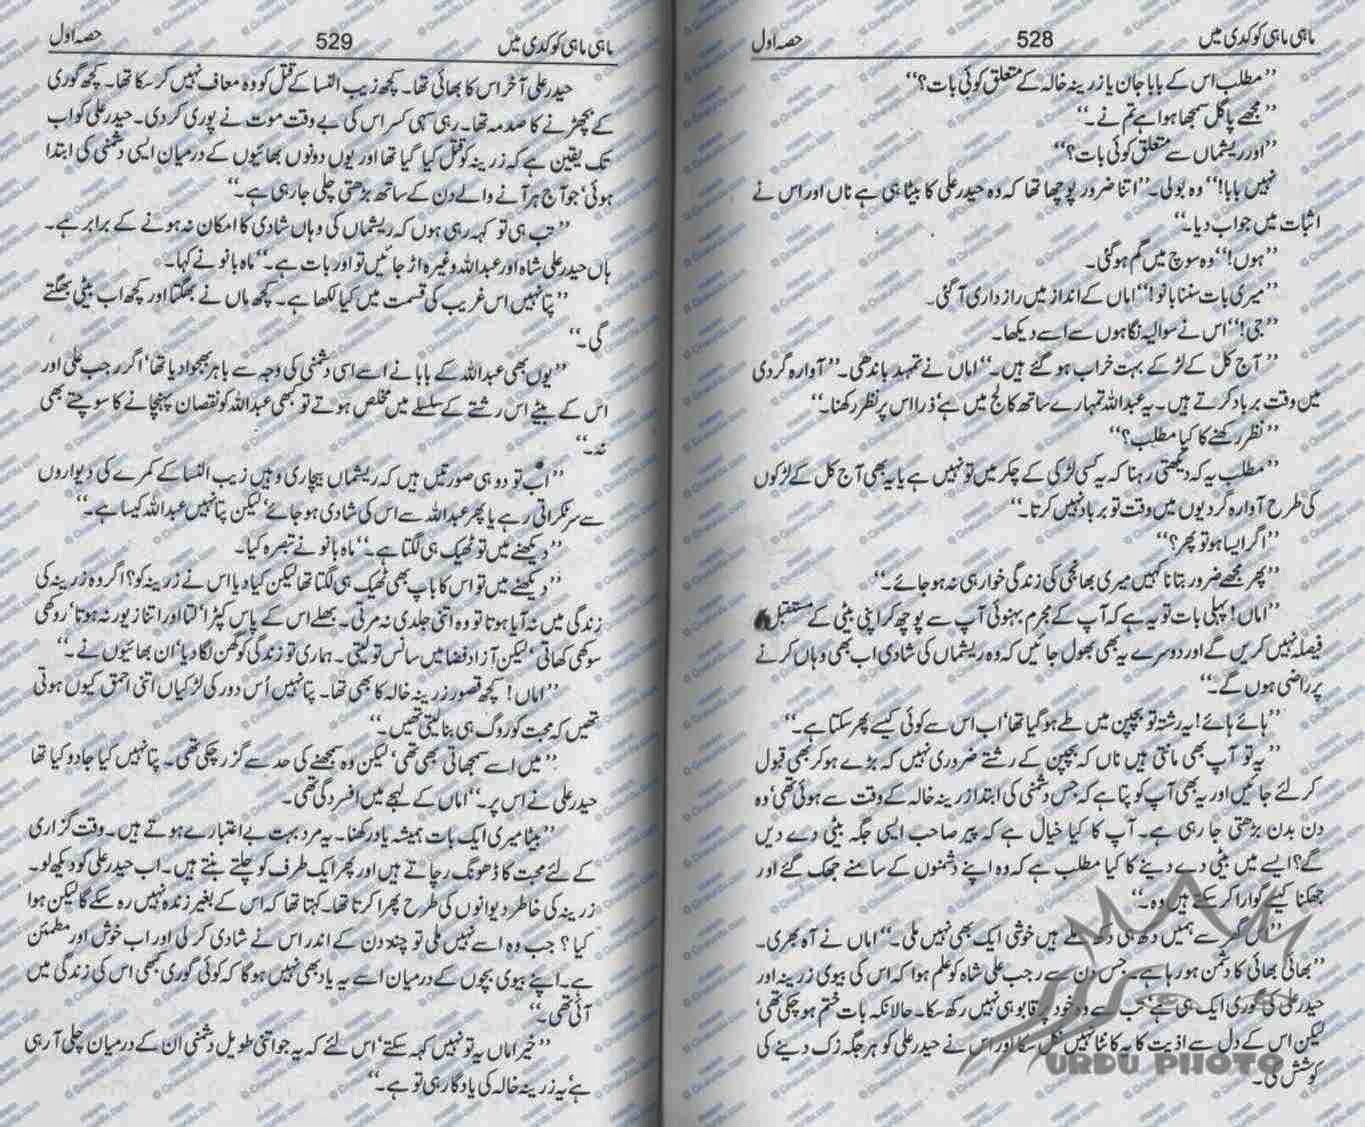 ماہی ماہی کوکدی میں 528 حصہ اول
”مطلب اس کے بابا جان یا زرینہ خالہ کے متعلق کوئی بات؟“
”مجھے پاگل سمجھا ہوا ہے تم نے۔“
”اور ریشماں سے متعلق کوئی بات؟“
نہیں بابا!“ وہ بولی۔ ”اتنا ضرور پوچھا تھا کہ وہ حیدر علی کا بیٹا ہی ہے ناں اور اس نے
اثبات میں جواب دیا۔“
”ہوں!“ وہ سوچ میں گم ہوگئی۔
”میری بات سننا بانو!“ اماں کے انداز میں رازداری آگئی۔
”جی!“ اس نے سوالیہ نگاہوں سے اسے دیکھا۔
”آج کل کے لڑکے بہت خراب ہوگئے ہیں۔“ اماں نے تمہید باندھی۔ ”آوارہ گردی
میں وقت برباد کرتے ہیں۔ یہ عبداللہ تمہارے ساتھ کالج میں ہے‘ ذرا اس پر نظر رکھنا۔“
”نظر رکھنے کا کیا مطلب؟“
”مطلب یہ کہ دیکھتی رہنا کہ یہ کسی لڑکی کے چکر میں تو نہیں ہے یا یہ بھی آج کل کے لڑکوں
کی طرح آوارہ گردیوں میں وقت تو برباد نہیں کرتا۔“
”اگر ایسا ہو تو پھر؟“
”پھر مجھے ضرور بتانا کہیں میری بھانجی کی زندگی خوار ہی نہ ہوجائے۔“
”اماں! پہلی بات تو یہ ہے کہ آپ کے مجرم بہنوئی آپ سے پوچھ کر اپنی بیٹی کے مستقبل کا
فیصلہ نہیں کریں گے اور دوسرے یہ بھی بھول جائیں کہ وہ ریشماں کی شادی اب بھی وہاں کرنے
پر راضی ہوں گے۔“
”ہائے ہائے! یہ رشتہ تو بچپن میں طے ہوگیا تھا‘ اب اس سے کوئی کیسے پھر سکتا ہے۔“
”یہ تو آپ بھی مانتی ہیں ناں کہ بچپن کے رشتے ضروری نہیں کہ بڑے ہو کر بھی قبول
کر لئے جائیں اور یہ بھی آپ کو پتا ہے کہ جس دشمنی کی ابتدا زرینہ خالہ کے وقت سے ہوئی تھی‘ وہ
دن بدن بڑھتی جا رہی ہے۔ آپ کا کیا خیال ہے کہ پیر صاحب ایسی جگہ بیٹی دے دیں
گے؟ ایسے میں بیٹی دے دینے کا کیا مطلب ہے کہ وہ اپنے دشمنوں کے سامنے جھک گئے اور
جھکنا کیسے گوارا کرسکتے ہیں وہ۔“
گھر سے ہمیں دکھ ہی دکھ ملے ہیں خوشی ایک بھی نہیں ملی۔“ اماں نے آہ بھری۔
”بھائی بھائی کا دشمن ہو رہا ہے۔ جس دن سے رجب علی شاہ کو علم ہوا کہ اس کی بیوی زرینہ اور
حیدر علی کی گوری ایک ہی ہے‘ تب سے وہ خود پر قابو ہی نہیں رکھ سکا۔ حالانکہ بات ختم ہوچکی تھی‘
لیکن اس کے دل سے اذیت کا یہ کانٹا نہیں نکل سکا اور اس نے حیدر علی کو ہر جگہ زک دینے کی
کوشش کی۔
URDU PHOTO
ماہی ماہی کوکدی میں 529 حصہ اول
حیدر علی آخر اس کا بھائی تھا۔ کچھ زیب النسا کے قتل کو وہ معاف نہیں کرسکا تھا۔ کچھ گوری
کے بچھڑنے کا صدمہ تھا۔ رہی سہی کسر اس کی بے وقت موت نے پوری کردی۔ حیدر علی کو اب
تک یقین ہے کہ زرینہ کو قتل کیا گیا تھا اور یوں دونوں بھائیوں کے درمیان ایسی دشمنی کی ابتدا
ہوئی‘ جو آج ہر آنے والے دن کے ساتھ بڑھتی چلی جارہی ہے۔“
”تب ہی تو کہہ رہی ہوں کہ ریشماں کی وہاں شادی کا امکان نہ ہونے کے برابر ہے۔
ہاں حیدر علی شاہ اور عبداللہ وغیرہ اڑ جائیں تو اور بات ہے۔“ ماہ بانو نے کہا۔
”پتا نہیں اس غریب کی قسمت میں کیا لکھا ہے۔ کچھ ماں نے بھگتا اور کچھ اب بیٹی بھگتے
گی۔“
”یوں بھی عبداللہ کے بابا نے اسے اسی دشمنی کی وجہ سے باہر بھجوا دیا تھا‘ اگر رجب علی اور
اس کے بیٹے اس رشتے کے سلسلے میں مخلص ہوتے تو کبھی عبداللہ کو نقصان پہنچانے کا سوچتے بھی
نہ۔“
”اب تو دو ہی صورتیں ہیں کہ ریشماں بیچاری وہیں زیب النسا کے کمرے کی دیواروں
سے سر ٹکراتی رہے یا پھر عبداللہ سے اس کی شادی ہوجائے‘ لیکن پتا نہیں عبداللہ کیسا ہے۔“
”دیکھنے میں تو ٹھیک ہی لگتا ہے۔“ ماہ بانو نے تبصرہ کیا۔
”دیکھنے میں تو اس کا باپ بھی ٹھیک ہی لگتا تھا لیکن کیا دیا اس نے زرینہ کو؟ اگر وہ زرینہ کی
زندگی میں نہ آیا ہوتا تو وہ اتنی جلدی نہ مرتی۔ بھلے اس کے پاس کپڑا‘ لتا اور اتنا زیور نہ ہوتا‘ روکھی
سوکھی کھاتی‘ لیکن آزاد فضا میں سانس تو لیتی۔ ہماری تو زندگی کو گھن لگا دیا‘ ان بھائیوں نے۔“
”اماں! کچھ قصور زرینہ خالہ کا بھی تھا۔ پتا نہیں اُس دور کی لڑکیاں اتنی احمق کیوں ہوتی
تھیں کہ محبت کو روگ ہی بنا لیتی تھیں۔“
”میں اسے سمجھاتی بھی تھی‘ لیکن وہ سمجھنے کی حد سے گزر چکی تھی۔ پتا نہیں کیا جادو کیا تھا
حیدر علی نے اس پر۔“ اماں کے لہجے میں افسردگی تھی۔
”بیٹا میری ایک بات ہمیشہ یاد رکھنا۔ یہ مرد بہت بے اعتبارے ہوتے ہیں۔ وقت گزاری
کے لئے محبت کا ڈھونگ رچاتے ہیں اور پھر ایک طرف کو چلتے بنتے ہیں۔ اب حیدر علی کو دیکھ لو۔
زرینہ کی خاطر دیوانوں کی طرح پھرا کرتا تھا۔ کہتا تھا کہ اس کے بغیر زندہ نہیں رہ سکے گا لیکن ہوا
کیا؟ جب وہ اسے نہیں ملی تو چند دن کے اندر اس نے شادی کر لی اور اب خوش اور مطمئن
ہے۔ اپنے بیوی بچوں کے درمیان اسے یہ یاد بھی نہیں ہوگا کہ کوئی گوری کبھی اس کی زندگی میں
آئی تھی۔“
”خیر اماں یہ تو نہیں کہہ سکتے‘ اس لئے کہ یہ جو اتنی طویل دشمنی ان کے درمیان چلی آرہی
ہے‘ یہ زرینہ خالہ کی یادگار ہی تو ہے۔“